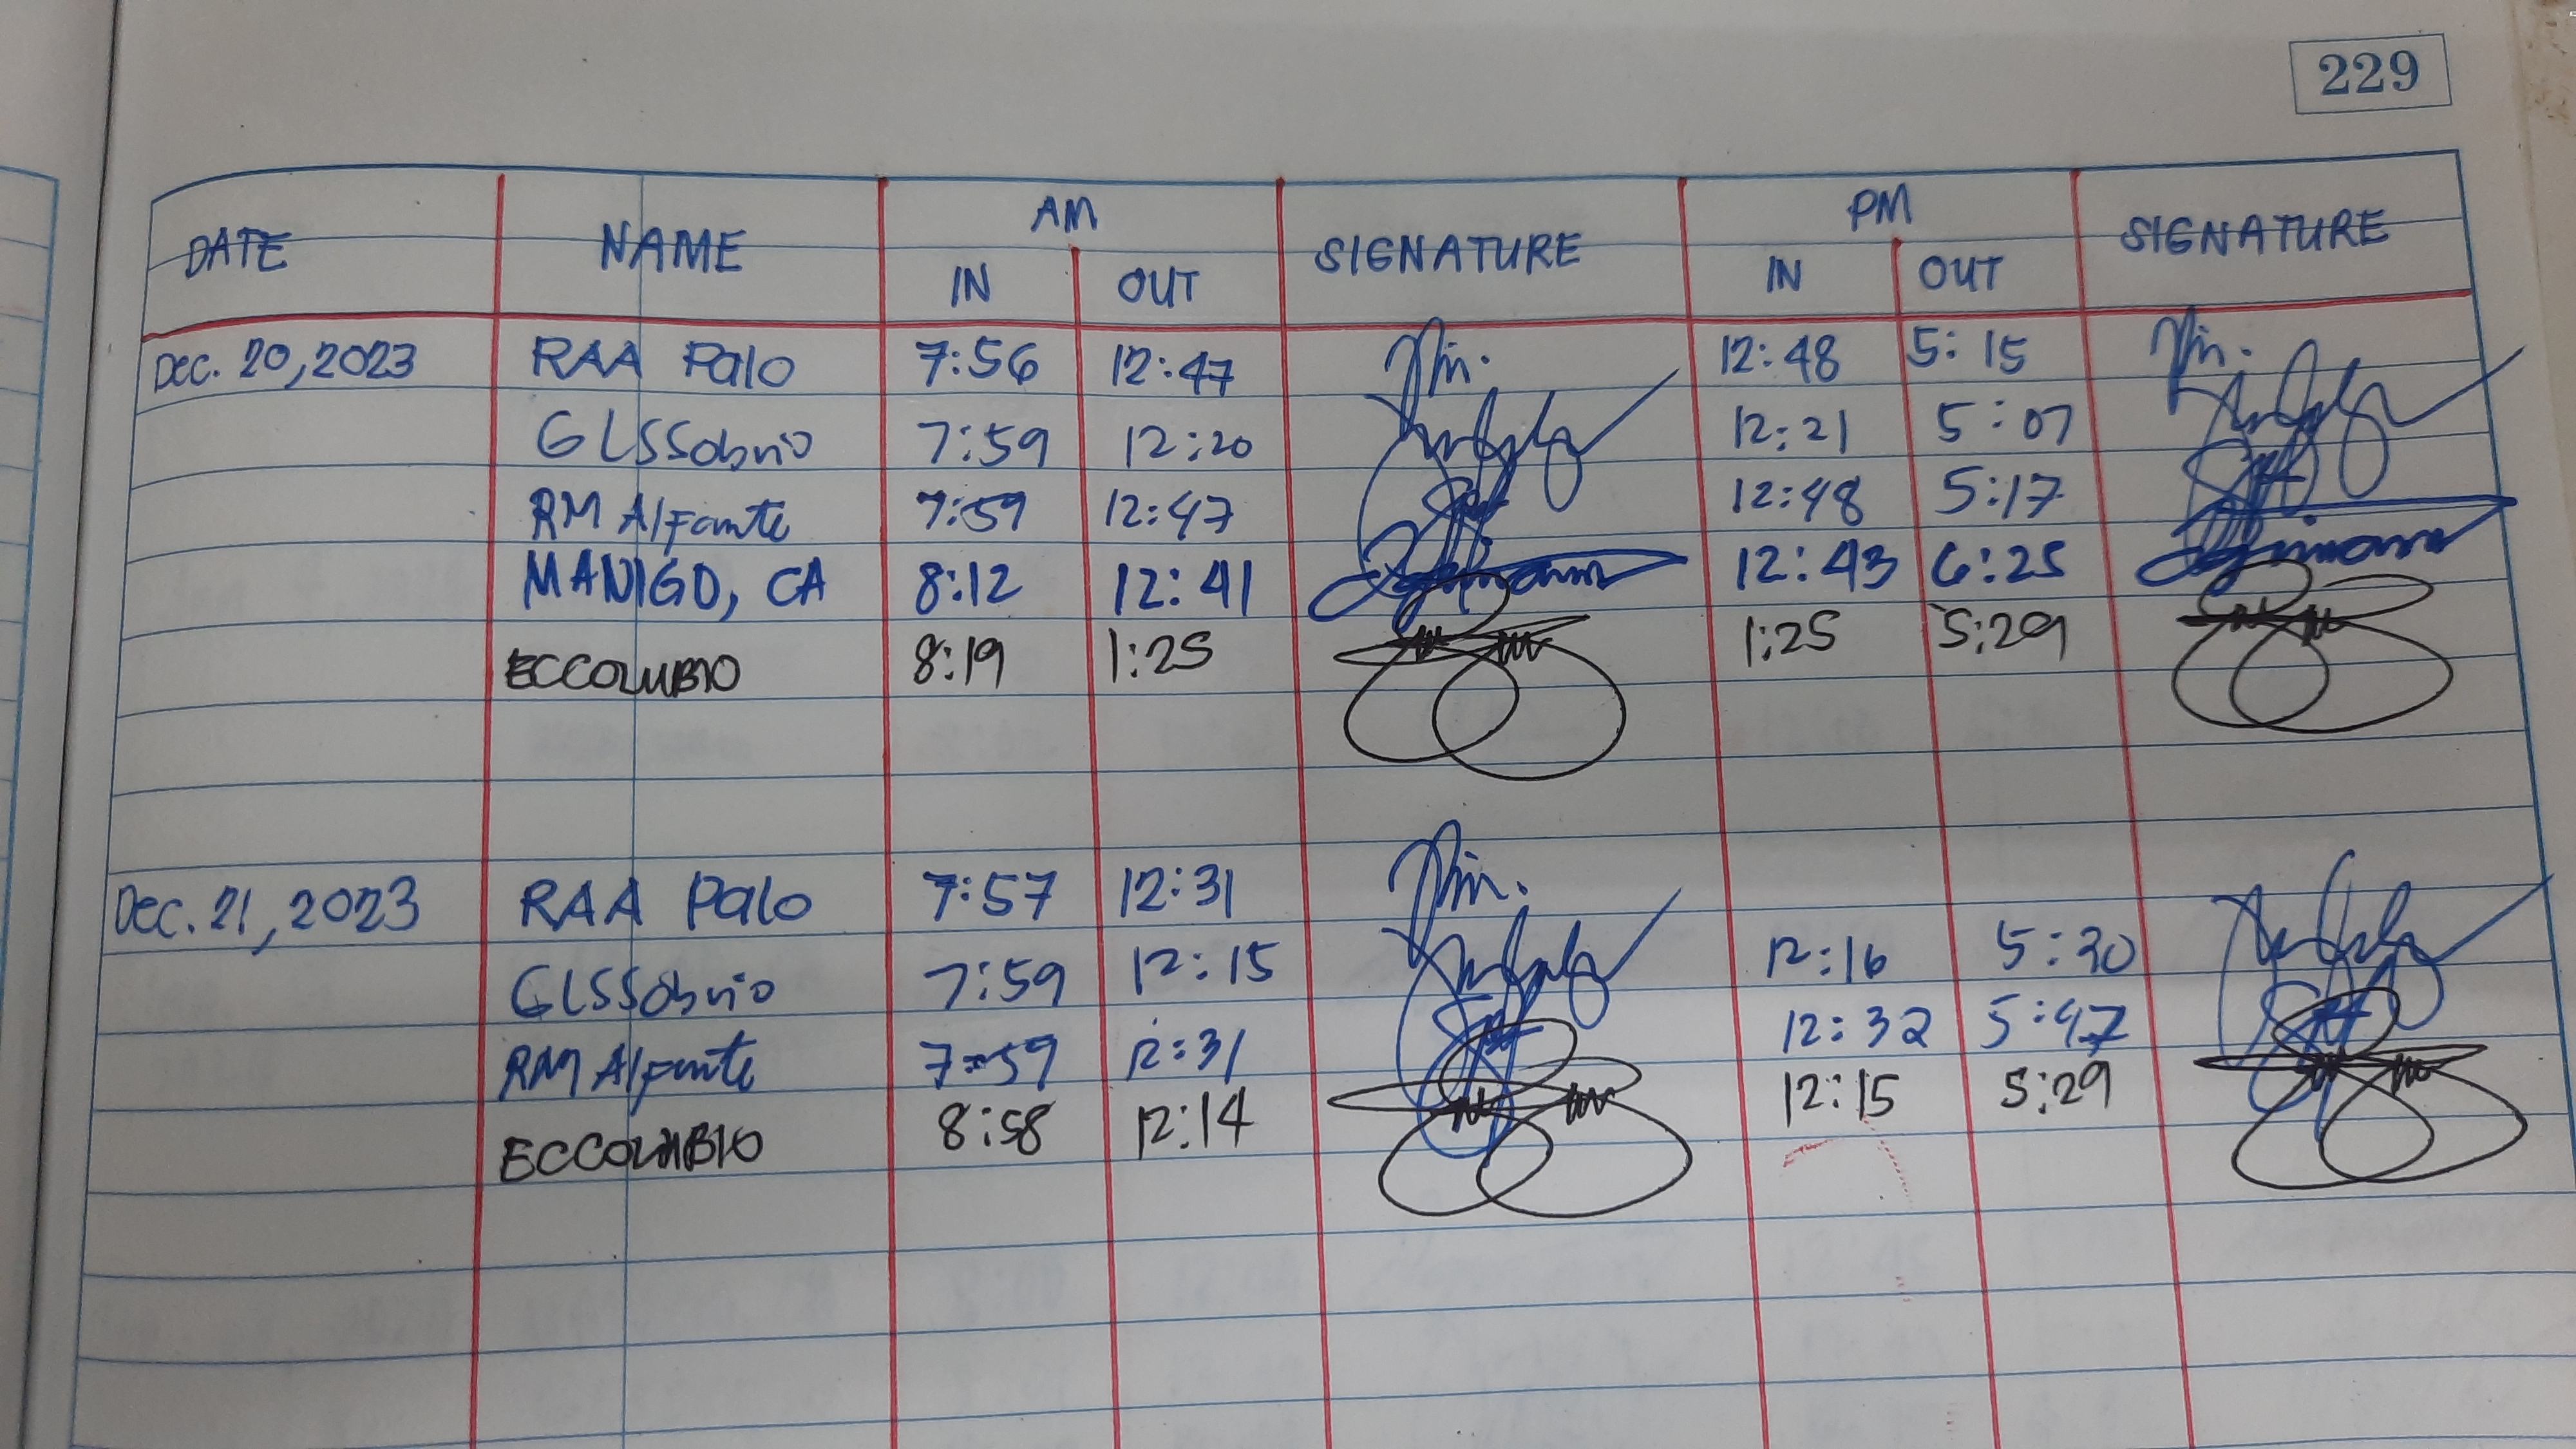 229
DATE NAME AM SIGNATURE PM SIGNATURE
IN OUT IN OUT
Dec. 20, 2023 RAA Palo 7:56 12:47 12:48 5:15
GLSSobrio 7:59 12:20 12:21 5:07
RM Alfante 7:59 12:47 12:48 5:17
MANIGO, CA 8:12 12:41 12:43 6:25
ECCOLUBIO 8:19 1:25 1:25 5:29
Dec. 21, 2023 RAA Palo 7:57 12:31
GLSSobrio 7:59 12:15 12:16 5:30
RM Alfante 7:59 12:31 12:32 5:47
ECCOLUBIO 8:58 12:14 12:15 5:29